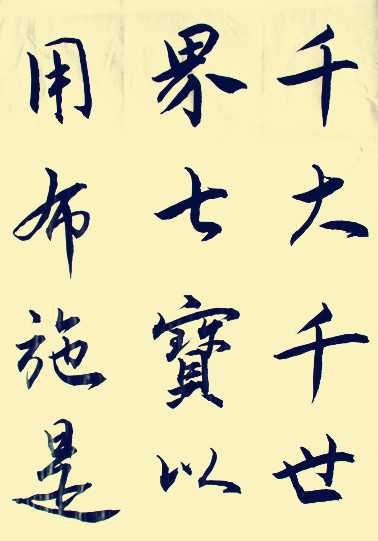 千大千世
界七寶以
用布施是